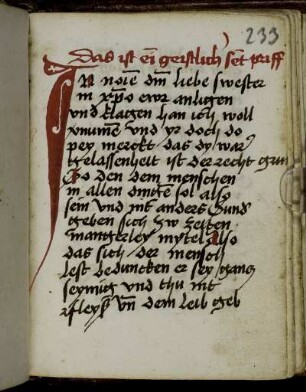 233
das ist ein geistlich sent priff
In noie dm liebe swester
in xpo ewr anligen
vnd klagen han ich woll
vnumen vnd yr doch do
pey merckt das dy war
gelassenheit ist der recht grun
so den dem menschen
in allen dingen sol also
sein vnd nit anders Sund
geben sich zw zeiten
mangerley mytel also
das sich der mensch
lest beduncken er sey gancz
seymig vnd thu nit
fleysz vn dem leib geb